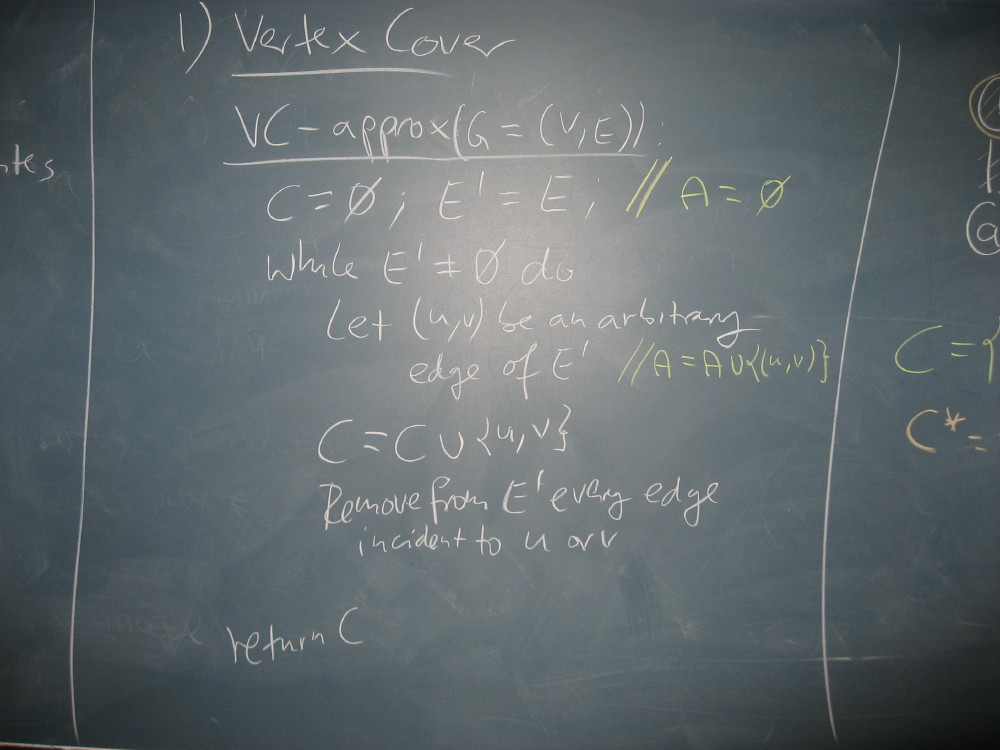 1) Vertex Cover
VC-approx(G=(V,E)):
C=∅; E'=E; // A=∅
While E'≠∅ do
Let (u,v) be an arbitrary
edge of E' //A=A∪{(u,v)}
C=C∪{u,v}
Remove from E' every edge
incident to u or v
return C
ntes
(a
C={
C*=